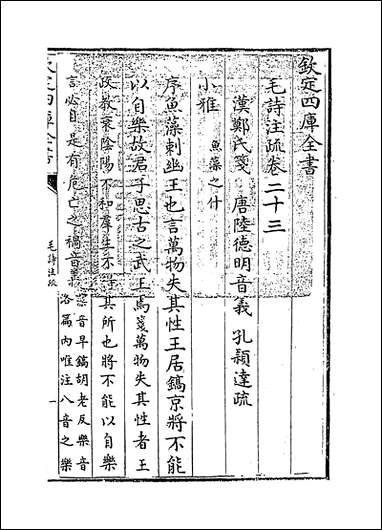 欽定四庫全書
毛詩注疏卷二十三
漢鄭氏箋 唐陸德明音義 孔穎達疏
小雅 魚藻之什
序魚藻刺幽王也言萬物失其性王居鎬京將不能
以自樂故君子思古之武王焉箋萬物失其性者王
政教衰陰陽不和羣生不得其所也將不能以自樂
言必自是有危亡之禍音義
藻音早鎬胡老反樂音
洛篇內唯注八音之樂
毛詩注疏
一